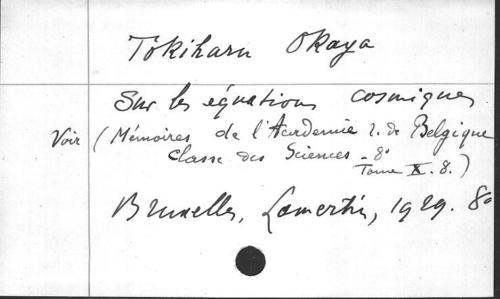 Tokiharu Okaya
Sur les équations cosmiques
Voir (Mémoires de l'Académie r. de Belgique
Classe des Sciences - 8°
Tome X. 8.)
Bruxelles, Lamertin, 1929. 8°